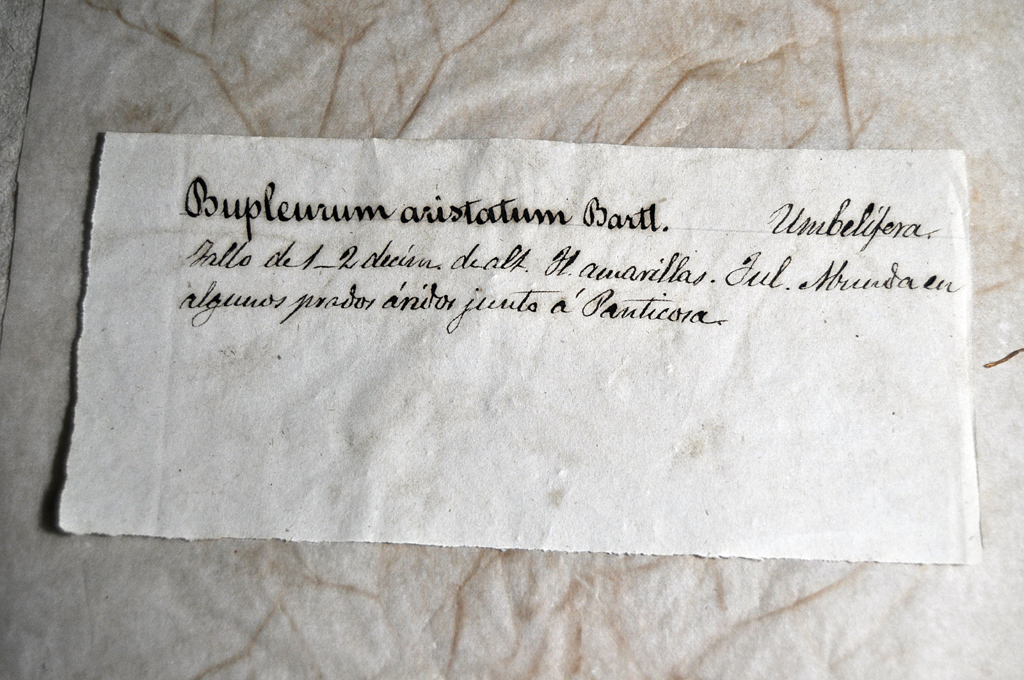 Bupleurum aristatum Bartl. Umbelífera.
Tallo de 1_2 decim. de alt. Fl. amarillas. Jul. Abunda en
algunos prados áridos junto á Panticosa.